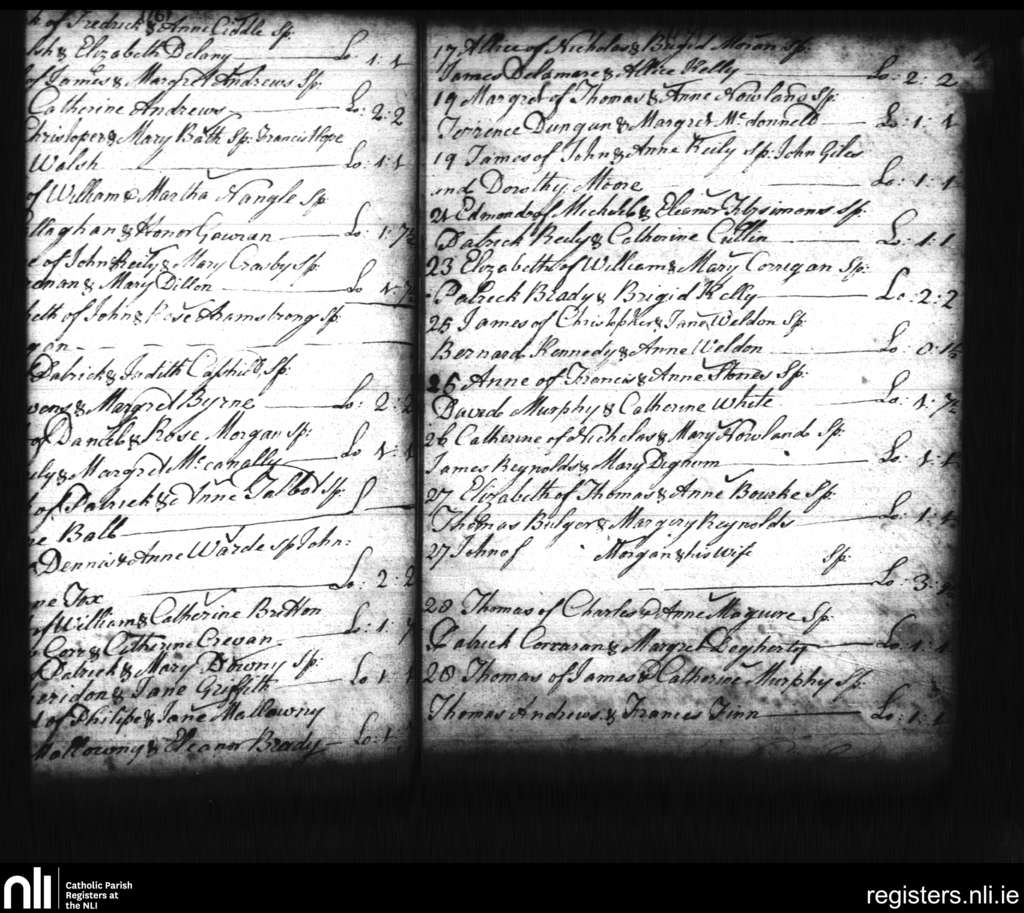 1767
of Fredrick & Anne Ciddle Sp:
& Elizabeth Delany Lo: 1: 1
of James & Margret Andrews Sp:
Catherine Andrews Lo: 2: 2
Christopher & Mary Bath Sp: Francis Hope
Walsh Lo: 1: 1
of William & Martha Nangle Sp
llaghan & Honor Gowran Lo: 1: 7½
e of John Reily & Mary Crosby Sp:
& Mary Dillon Lo 1: 7½
beth of John & Rose Armstrong Sp:
Patrick & Judith Sp:
& Margret Byrne Lo: 2: 2
of Daniel & Rose Morgan Sp:
& Margret Mccanally Lo 1: 1
of Patrick & Anne Talbot Sp:
ne Balb
Dennis & Anne Warde Sp John:
ne Fox Lo: 2: 2
of William & Catherine Bretton
Corr & Citherine Crevan Lo: 1: 7
Patrick & Mary Downy Sp:
eridon & Jane Griffith Lo 1: 1
of Philipe & Jane Mallowny
Mallowny & Eleanor Brady Lo: 1:
17 Allice of Nicholas & Brigid Moran Sp:
James Delamare & Allice Kelly Lo: 2: 2
19 Margret of Thomas & Anne Nowland Sp:
Terrence Dungan & Margret Mcdonnell Lo: 1: 1
19 James of John & Anne Reily Sp: John Giles
and Dorothy Moore Lo: 1: 1
21 Edmond of Michell & Eleonor Fitzsimons Sp:
Patrick Reily & Catherine Cullin Lo: 1: 1
23 Elizabeth of William & Mary Corregan Sp:
Patrick Brady & Brigid Kelly Lo: 2: 2
25 James of Christopher & Jane Weldon Sp:
Bernard Kennedy & Anne Weldon Lo: 0:
26 Anne of Francis & Anne Stones Sp:
David Murphy & Catherine White Lo: 1: 7½
26 Catherine of Nicholas & Mary Nowland Sp:
James Reynolds & Mary Dignum Lo: 1: 1
27 Elizabeth of Thomas & Anne Bourke Sp:
Thomas Bulger & Margery Reynolds Lo: 1: 1
27 John of Morgan & his Wife Sp:
Lo: 3:
28 Thomas of Charles & Anne Maguire Sp:
Patrick Corcaran & Margret Dogherty Lo: 1: 1
28 Thomas of James & Catherine Murphy Sp:
Thomas Andrews & Frances Finn Lo: 1: 1
nli
Catholic Parish
Registers at
the NLI
registers.nli.ie